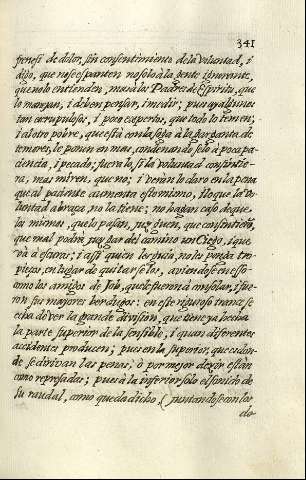 341
frenesi de dolor, sin consentimiento de la Voluntad, i
digo, que no se espanten no solo a la gente ignorante,
que no lo entienden, mas a los Padres de Espiritu, que
lo manejan, i deben pensar, i medir; pues ay algunos
tan escrupulosos, i poco expertos, que todo lo temen;
i al otro pobre, que està con la soga à la garganta de
temores, le ponen en mas, condenandoselo à poca pa-
ciencia, i pecado; fuera lo si la voluntad consintie-
ra, mas miren, que no; i veràn lo claro en la pena
que al paciente aumenta esto mismo, i lo que la Vo-
luntad abraza, no la tiene; no hagan caso de que
los mismos, que lo pasan, juzguen, que consintieron,
que mal podrà juzgar del camino un Ciego, i que
và à escuras; i assi quien les guia, no les ponga tro-
piezos, en lugar de quitarselos, aviendose en esso
como los amigos de Job, que le fueron à consolar, i fue-
ron sus mayores verdugos: en este riguroso trance se
echa de ver la grande division, que tiene ya hecha
la parte superior de la sensible, i quan diferentes
accidentes producen; pues en la superior, que es don-
de se dirivan las penas, ò por mejor dezir estàn
como represadas; pues à la inferior solo el sonido de
su raudal, como queda dicho (juntandose con lo
do